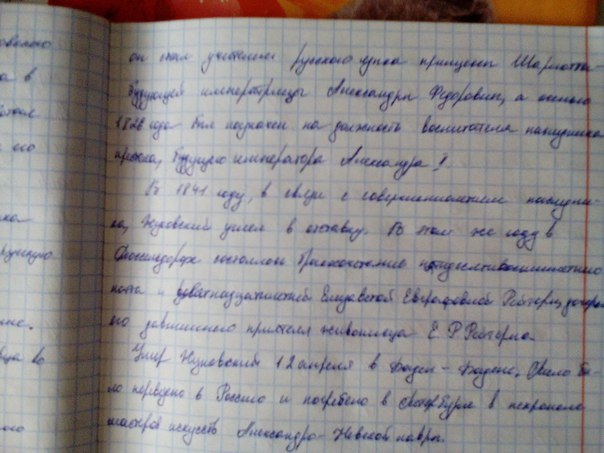 овского
а в
его
он стал учителем русского языка принцессы Шарлотты-
будующей императрицы Александры Фёдоровны, а осенью
1826 года был назначен на должность воспитателя наследника
престола, будущего императора Александра I
В 1841 году, в связи с совершеннолетием наследни-
ка, Жуковский ушел в отставку. В этом же году в
Дюссендорфе состоялось бракосочетание
поэта и девятнадцатилетней Елизаветой Евграфовной Рейтерн, дочери
его давнишнего приятеля живописца Е. Р. Рейтерна.
Умер Жуковский 12 апреля в Баден-Бадене, тело бы-
ло перевезено в Россию и погребено в Петербурге в некрополе
мастеров искусств Александро-Невской лавры.